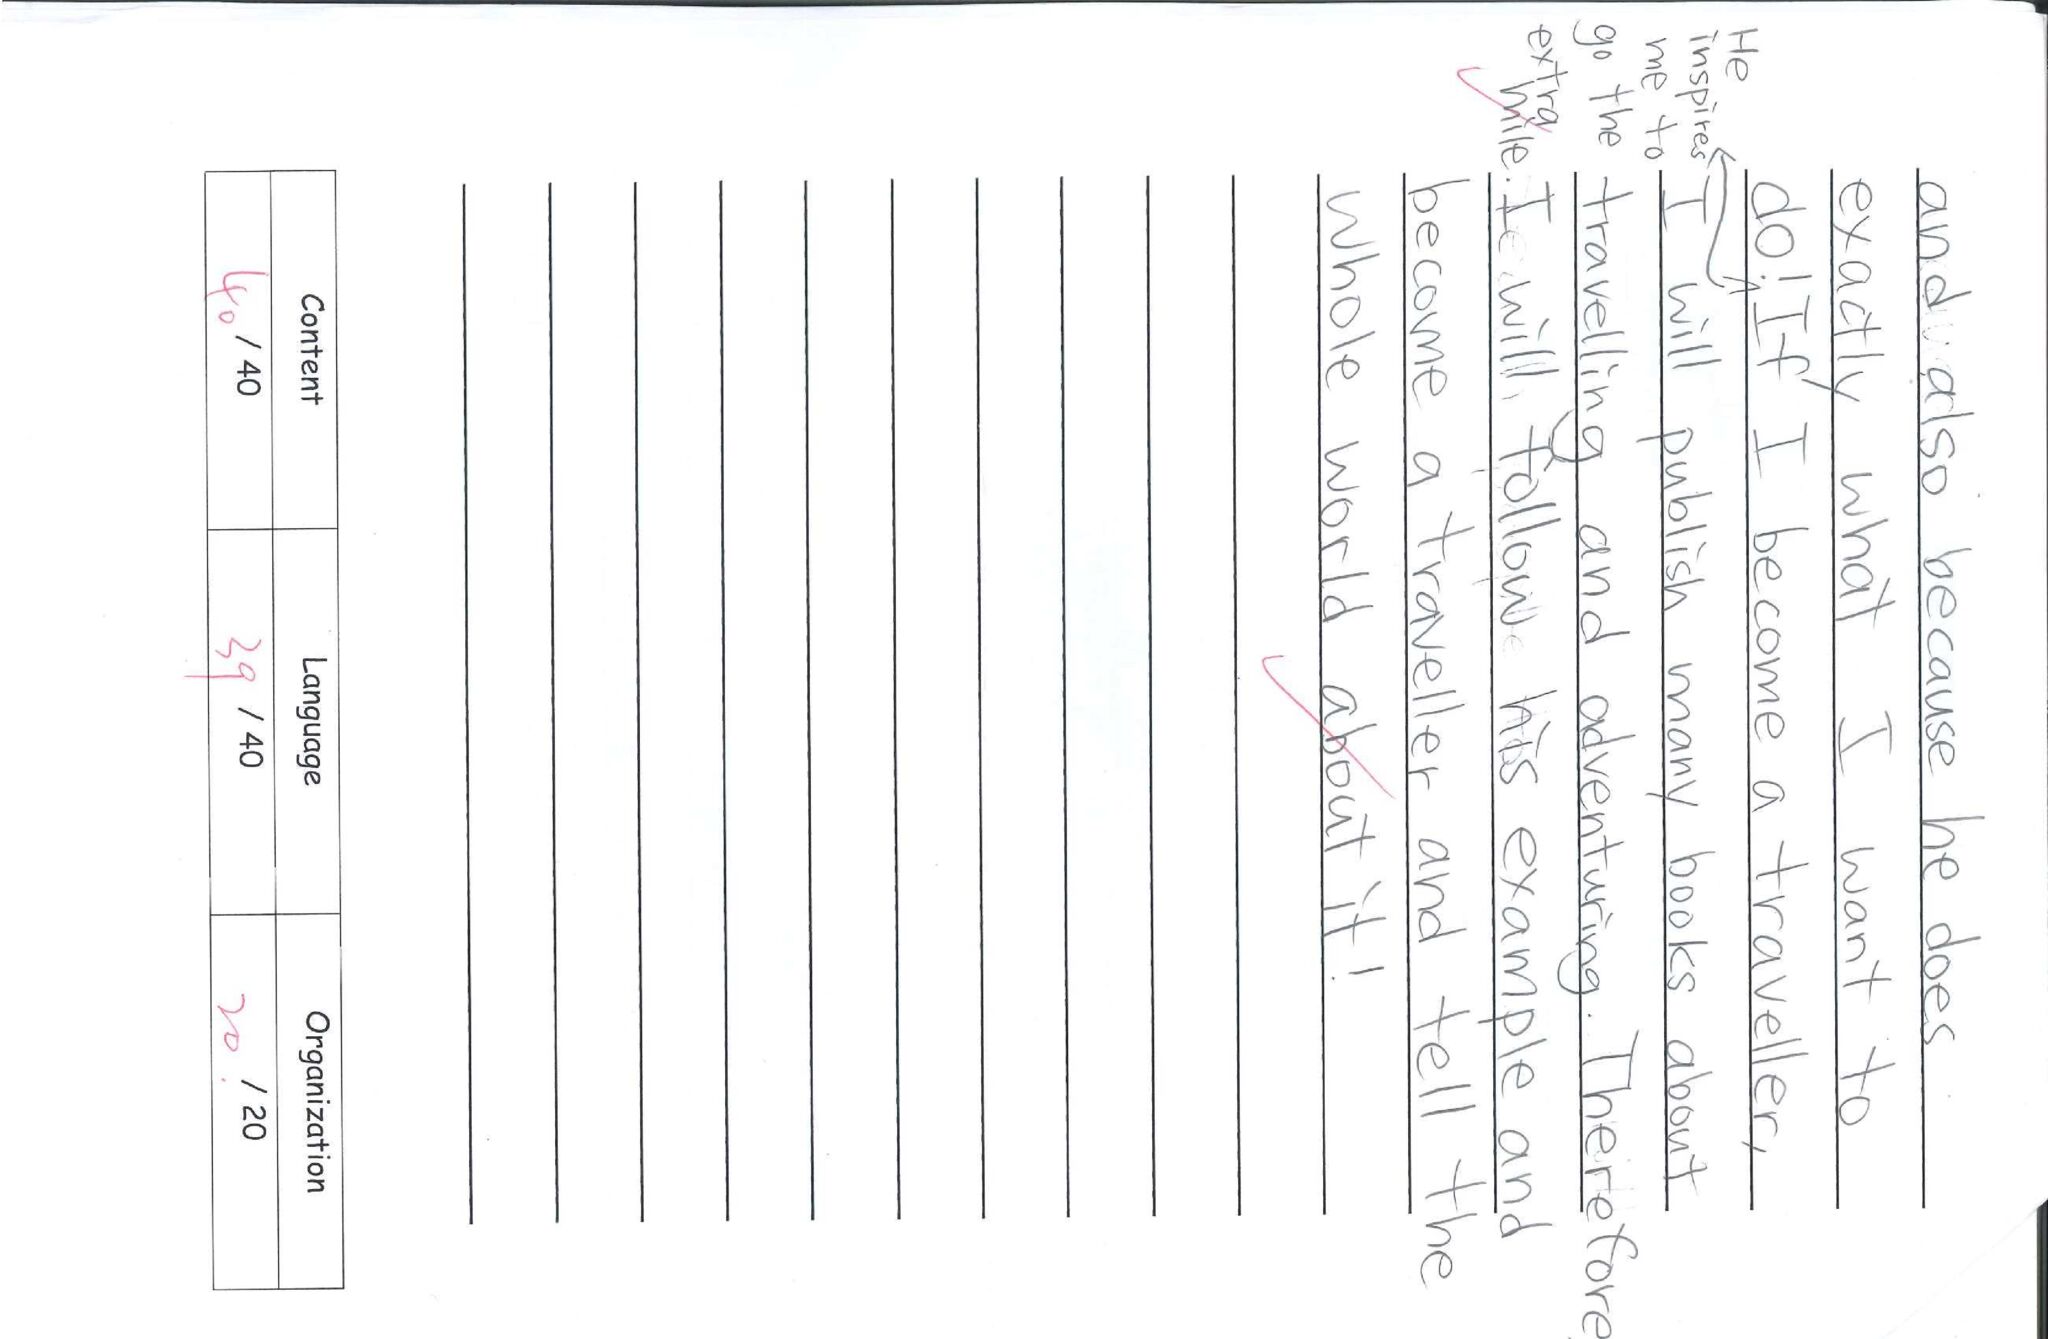 and also because he does
exactly what I want to
do! If I become a traveller,
He
inspires
me to
go the
extra
mile.
I will publish many books about
travelling and adventuring. Therefore
I will follow his example and
become a traveller and tell the
whole world about it!
Content
Language
Organization
40 / 40
39 / 40
20 / 20